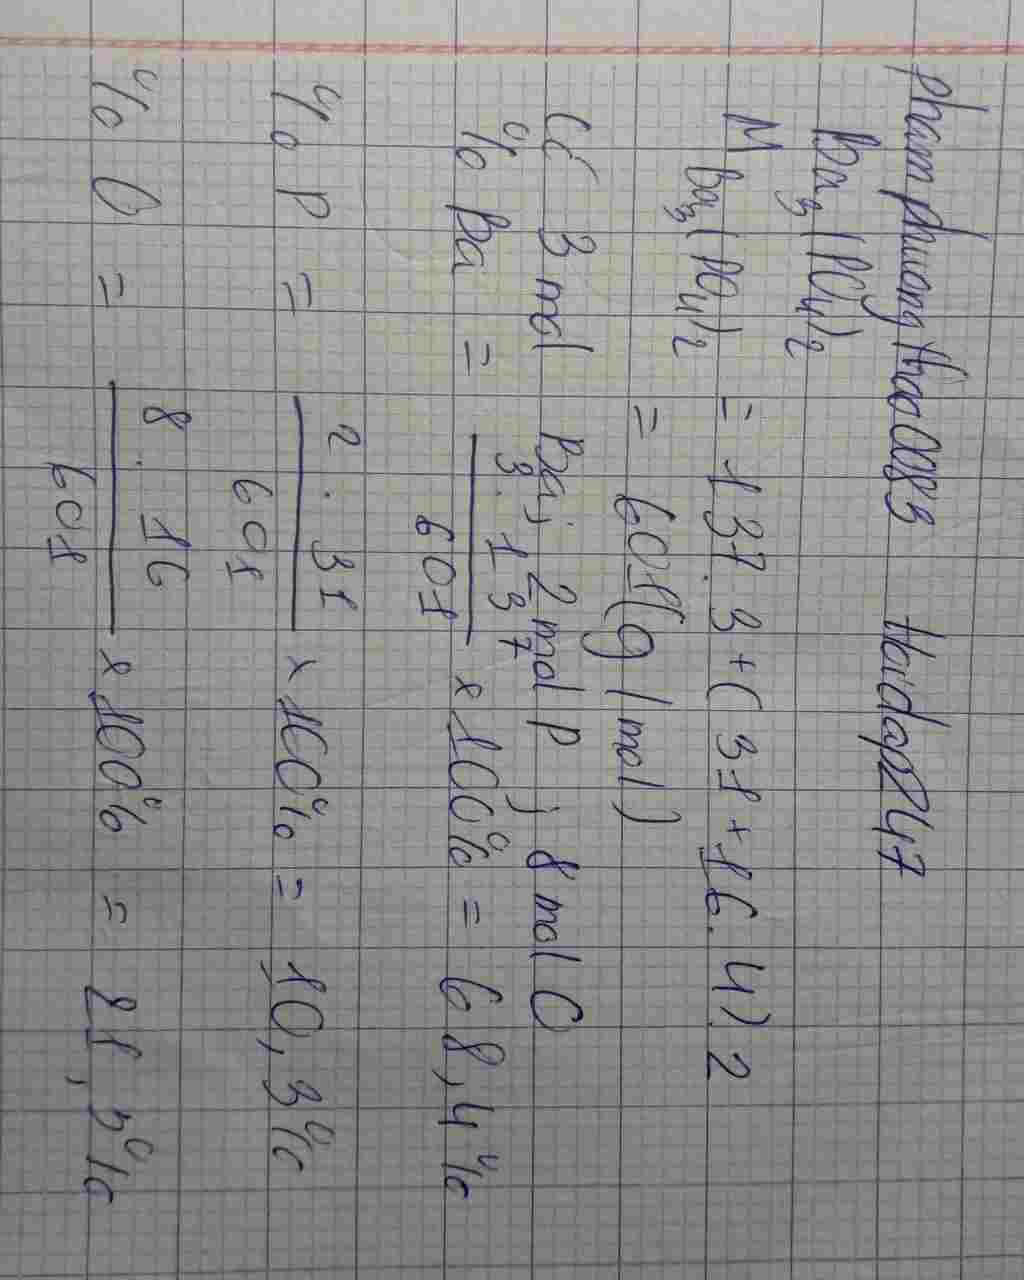 phamphuongthao0883 Hoidap247
Ba₃(PO₄)₂
M Ba₃(PO₄)₂ = 137.3+(31+16.4).2
= 601(g/mol)
Có 3 mol Ba; 2mol P; 8 mol O
% Ba = 3.137/601 × 100% = 68,4%
% P = 2.31/601 × 100% = 10,3%
% O = 8.16/601 × 100% = 21,3%